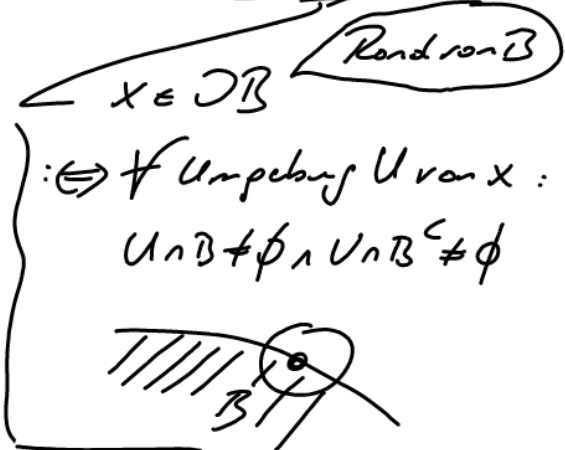 Rand von B
x ∈ ∂B
:⇔ ∀ Umgebung U von x :
U ∩ B ≠ ∅ ∧ U ∩ B^c ≠ ∅
B